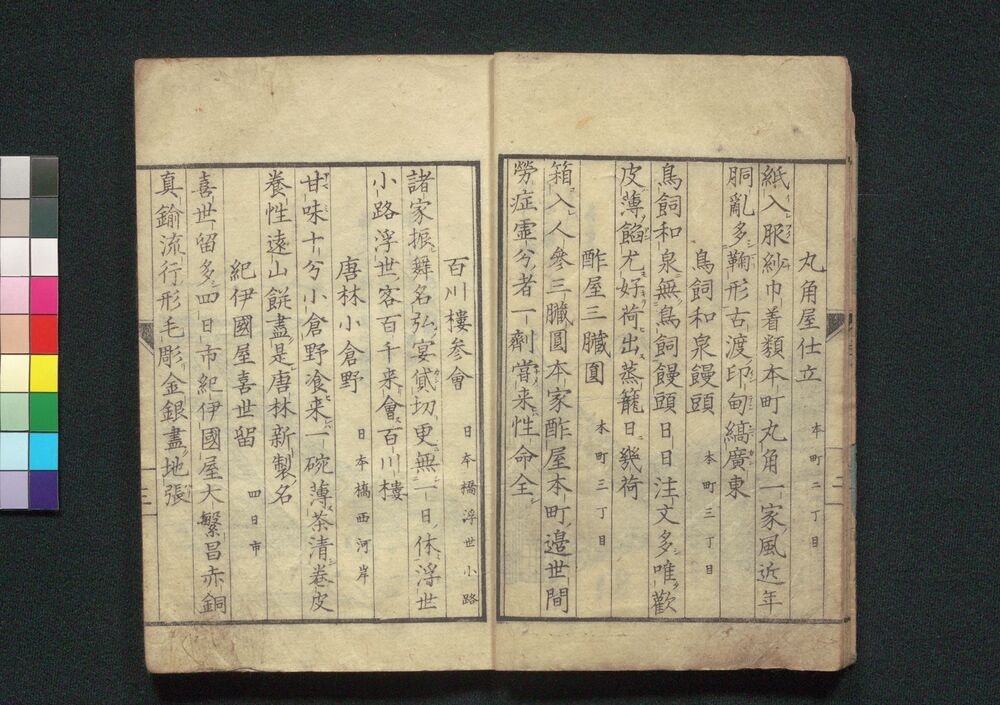 丸角屋仕立 本町二丁目
紙入服紗巾着類本町丸角一家風近年
胴亂多鞠形古渡印甸縞廣東
鳥飼和泉饅頭 本町三丁目
鳥飼和泉無鳥飼饅頭日日注文多唯歡
皮薄餡尤好荷出蒸籠日幾荷
酢屋三臓圓 本町三丁目
箱入人參三臓圓本家酢屋本町邉世間
勞症虚兮者一劑當来性命全
二
百川樓参會 日本橋浮世小路
諸家振舞名弘宴貸切更無一日休浮世
小路浮世客百千来會百川樓
唐林小倉野 日本橋西河岸
甘味十兮小倉野飡来一碗薄茶清卷皮
養性遠山餻盡是唐林新製名
紀伊國屋喜世留 四日市
喜世留多四日市紀伊國屋大繁昌赤銅
真鍮流行形毛彫金銀盡地張
三